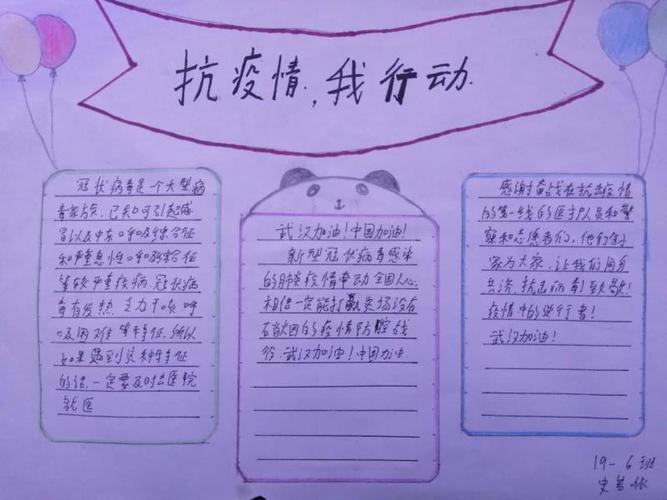 抗疫情，我行动.
冠状病毒是一个大型病
毒家族，已知可引起感
冒以及中东呼吸综合征
和严重急性呼吸综合征
等较严重疾病，冠状病
毒有发热、乏力干咳、呼
吸困难等特征，所以
如果遇到这种特征
的话，一定要及时去医院
就医
武汉加油！中国加油！
新型冠状病毒感染
的肺炎疫情牵动全国人心，
相信一定能打赢这场没有
硝烟的疫情防控战
役，武汉加油！中国加油.
感谢奋战在抗击疫情
的第一线的医护人员和警
察和志愿者们，他们舍小
家为大家，让我们同舟
共济，抗击病毒！致敬！
疫情中的逆行者！
武汉加油！
19-6班
史